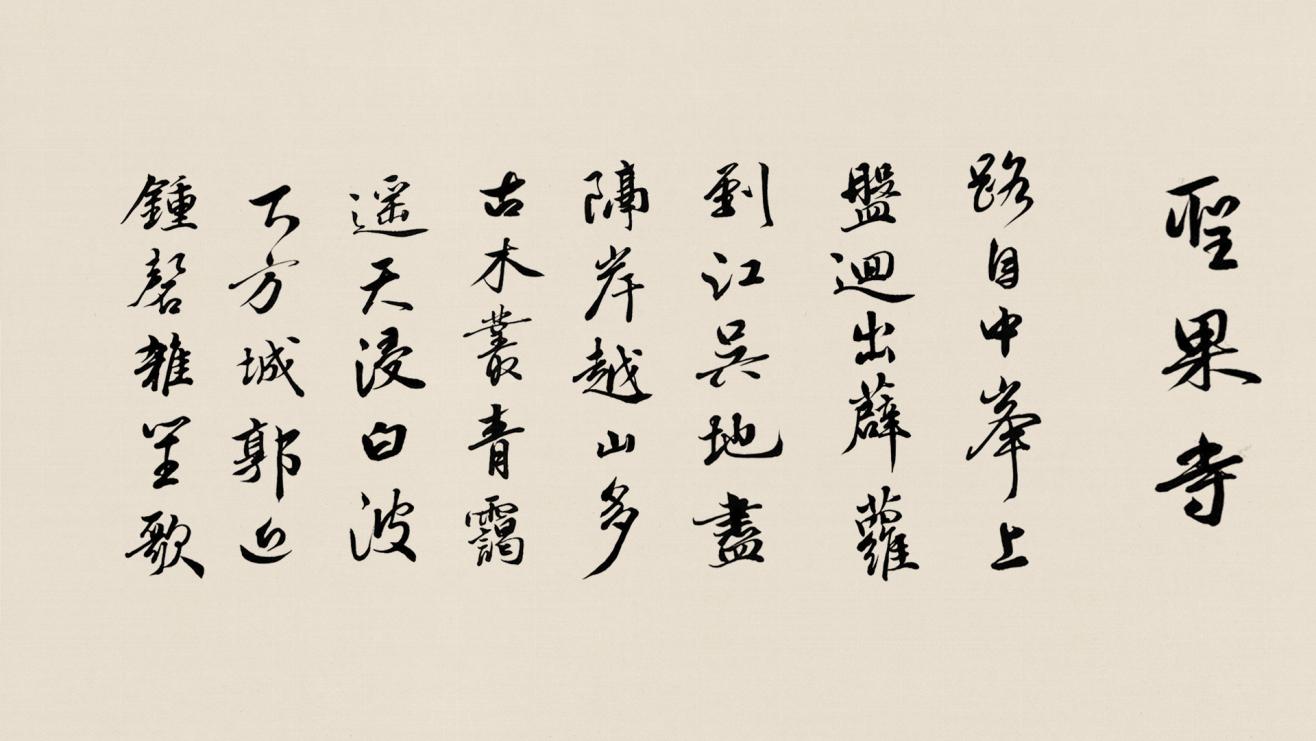 聖果寺
路自中峯上
盤迴出薜蘿
到江吳地盡
隔岸越山多
古木叢青靄
遥天浸白波
下方城郭近
鍾磬雜笙歌